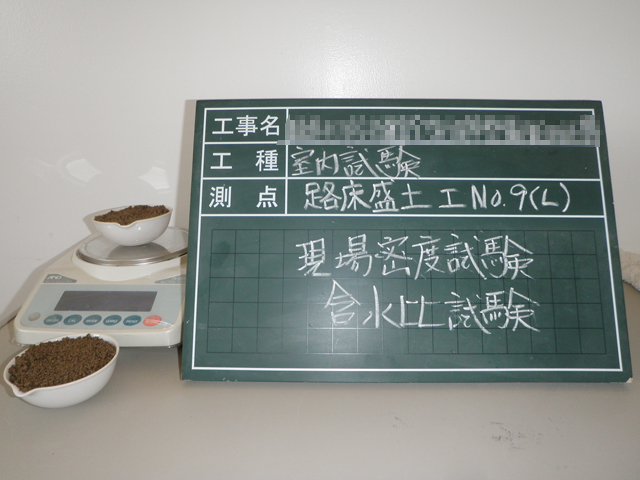 工事名
工種 室内試験
測点 路床盛土工No.9(L)
現場密度試験
含水比試験